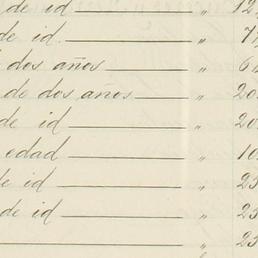 de id „ 12
de id. „ 7
dos años „ 6
de dos años „ 20
de id „ 20
edad „ 10
de id „ 25
de id „ 25
„ 25